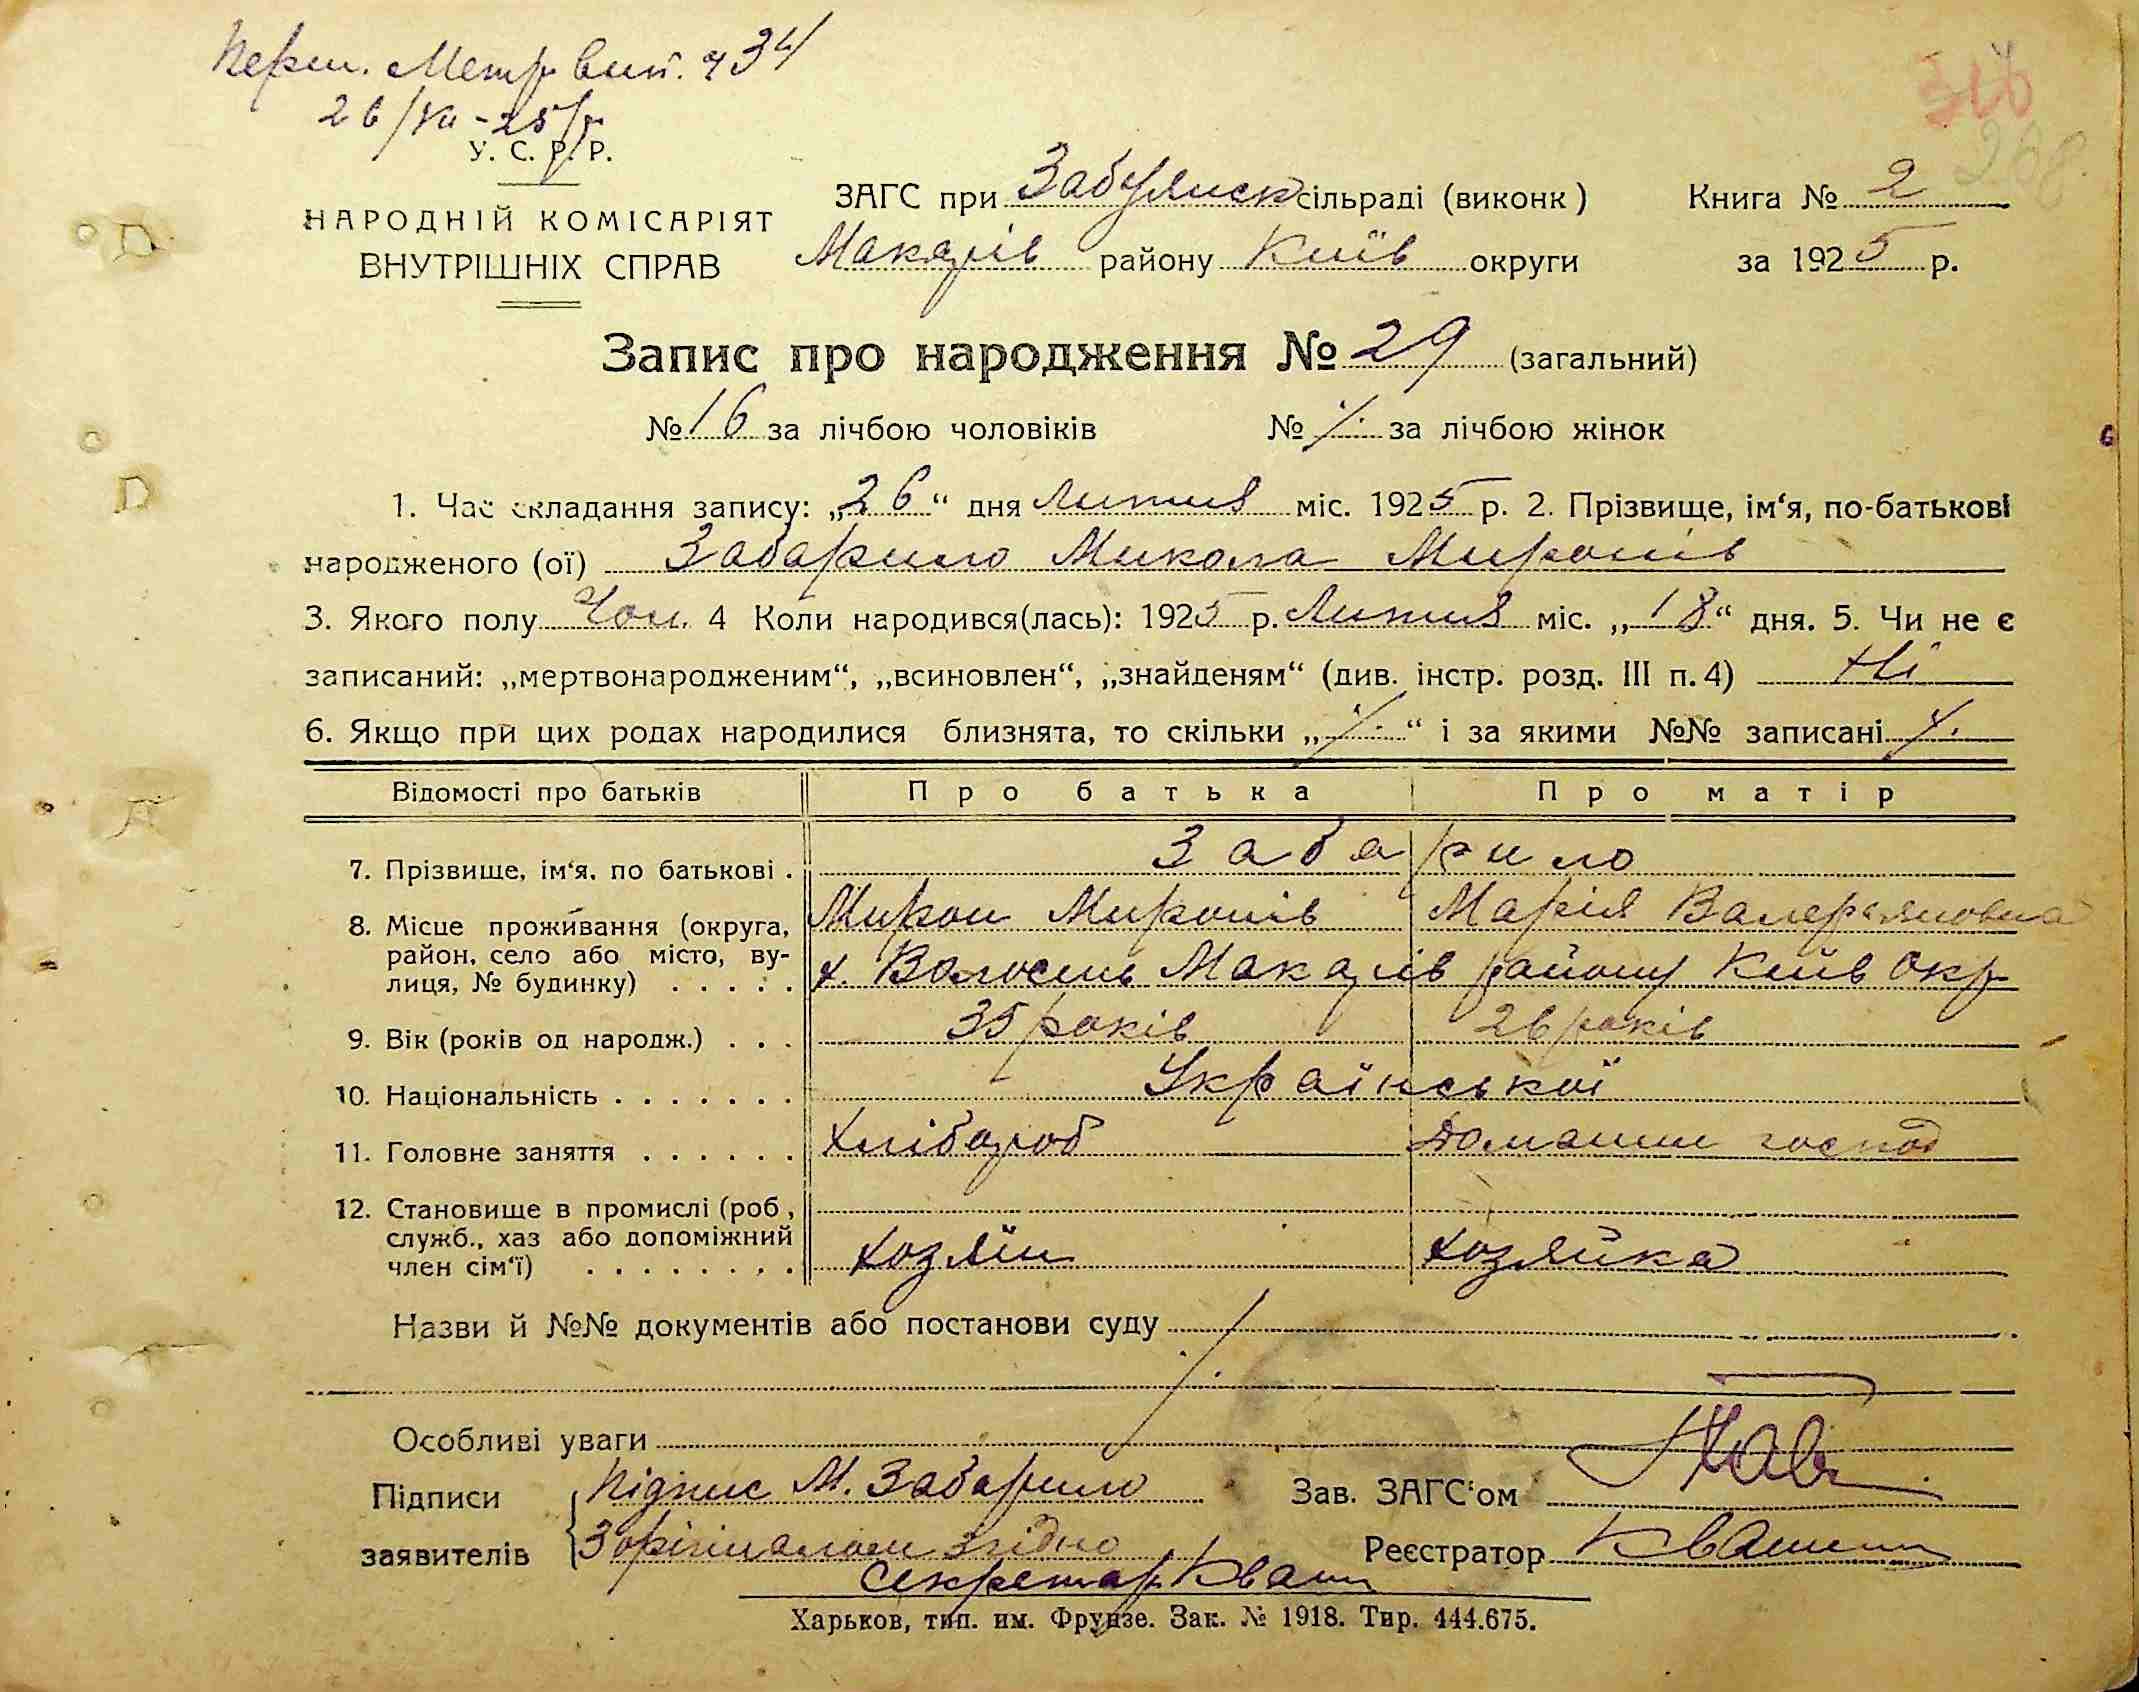 Перш. Метр вип. ч 34
26/VII-25/р
У. С. Р. Р.
НАРОДНІЙ КОМІСАРІЯТ
ВНУТРІШНІХ СПРАВ
ЗАГС при Забуянск сільраді (виконк)
Макарів району Київ округи
Книга № 2
за 1925 р.
Запис про народження № 29 (загальний)
№ 16 за лічбою чоловіків № /. за лічбою жінок
1. Час складання запису: „26“ дня Липня міс. 1925 р. 2. Прізвище, ім‘я, по-батькові
народженого (ої) Забарило Микола Миронів
3. Якого полу Чол. 4 Коли народився(лась): 1925 р. Липня міс. „18“ дня. 5. Чи не є
записаний: „мертвонародженим“, „всиновлен“, „знайденям“ (див. інстр. розд. III п. 4) Ні
6. Якщо при цих родах народилися близнята, то скільки „/.“ і за якими №№ записані /.
Відомості про батьків Про батька Про матір
7. Прізвище, ім‘я, по батькові . Забарило
Мирон Миронів Марія Валерьяновна
8. Місце проживання (округа,
район, село або місто, ву-
лиця, № будинку) . . . . . х. Волосень Макарів району Київ Окр
9. Вік (років од народж.) . . . 35 років 26 років
10. Національність . . . . . . . Української
11. Головне заняття . . . . . . Хлібороб Домашнє господ
12. Становище в промислі (роб,
служб., хаз або допоміжний
член сім‘ї) . . . . . . . . Хозяїн Хозяйка
Назви й №№ документів або постанови суду /.
Особливі уваги
Підписи
заявителів
Підпис М. Забарило
З орігіналом згідно
Секретар Кваш
Зав. ЗАГС‘ом
Реєстратор
Харьков, тип. им. Фрунзе. Зак. № 1918. Тир. 444.675.